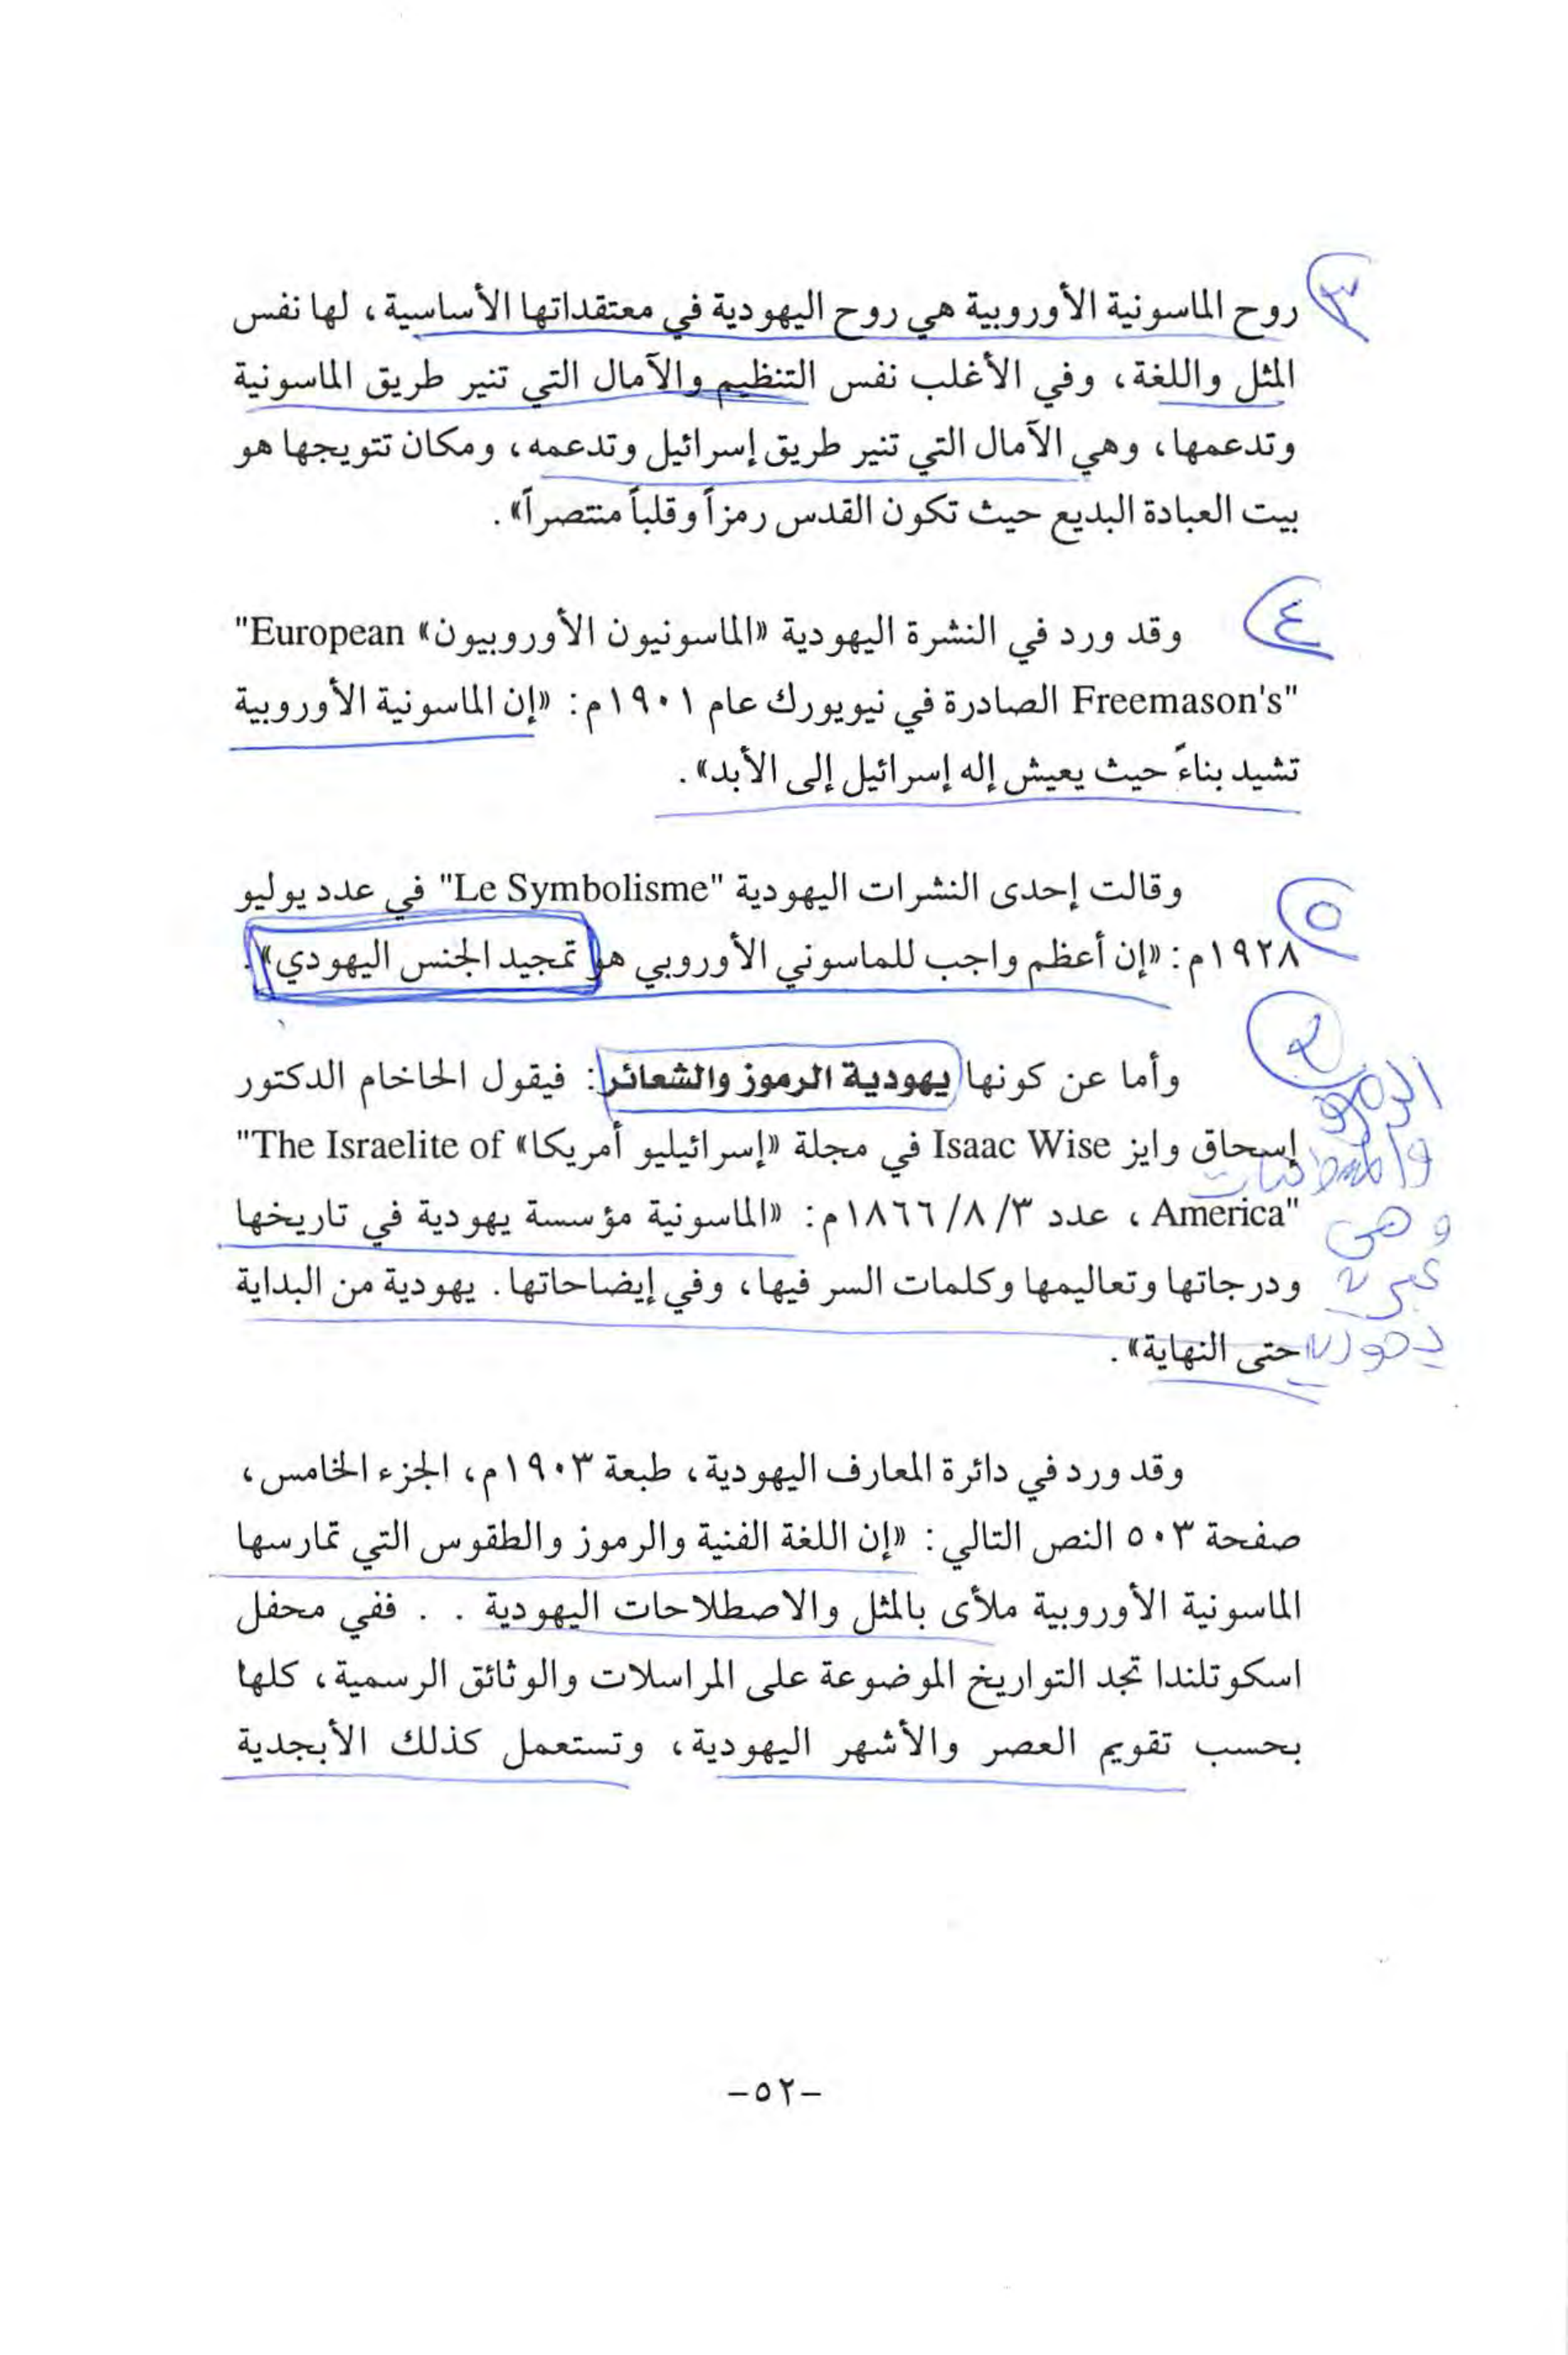 ٣
روح الماسونية الأوروبية هي روح اليهودية في معتقداتها الأساسية، لها نفس
المثل واللغة، وفي الأغلب نفس التنظيم والآمال التي تنير طريق الماسونية
وتدعمها، وهي الآمال التي تنير طريق إسرائيل وتدعمه، ومكان تتويجها هو
بيت العبادة البديع حيث تكون القدس رمزاً وقلباً منتصراً».
٤
وقد ورد في النشرة اليهودية «الماسونيون الأوروبيون» European"
"Freemason's الصادرة في نيويورك عام ١٩٠١م: «إن الماسونية الأوروبية
تشيد بناءً حيث يعيش إله إسرائيل إلى الأبد».
٥
وقالت إحدى النشرات اليهودية "Le Symbolisme" في عدد يوليو
١٩٢٨م: «إن أعظم واجب للماسوني الأوروبي هو تمجيد الجنس اليهودي».
وأما عن كونها يهودية الرموز والشعائر: فيقول الحاخام الدكتور
إسحاق وايز Isaac Wise في مجلة «إسرائيليو أمريكا» The Israelite of"
"America، عدد ١٨٦٦/٨/٣م: «الماسونية مؤسسة يهودية في تاريخها
ودرجاتها وتعاليمها وكلمات السر فيها، وفي إيضاحاتها. يهودية من البداية
حتى النهاية».
وهي
وقد ورد في دائرة المعارف اليهودية، طبعة ١٩٠٣م، الجزء الخامس،
صفحة ٥٠٣ النص التالي: «إن اللغة الفنية والرموز والطقوس التي تمارسها
الماسونية الأوروبية ملأى بالمثل والاصطلاحات اليهودية . . ففي محفل
اسكوتلندا تجد التواريخ الموضوعة على المراسلات والوثائق الرسمية، كلها
بحسب تقويم العصر والأشهر اليهودية، وتستعمل كذلك الأبجدية
-٥٢-